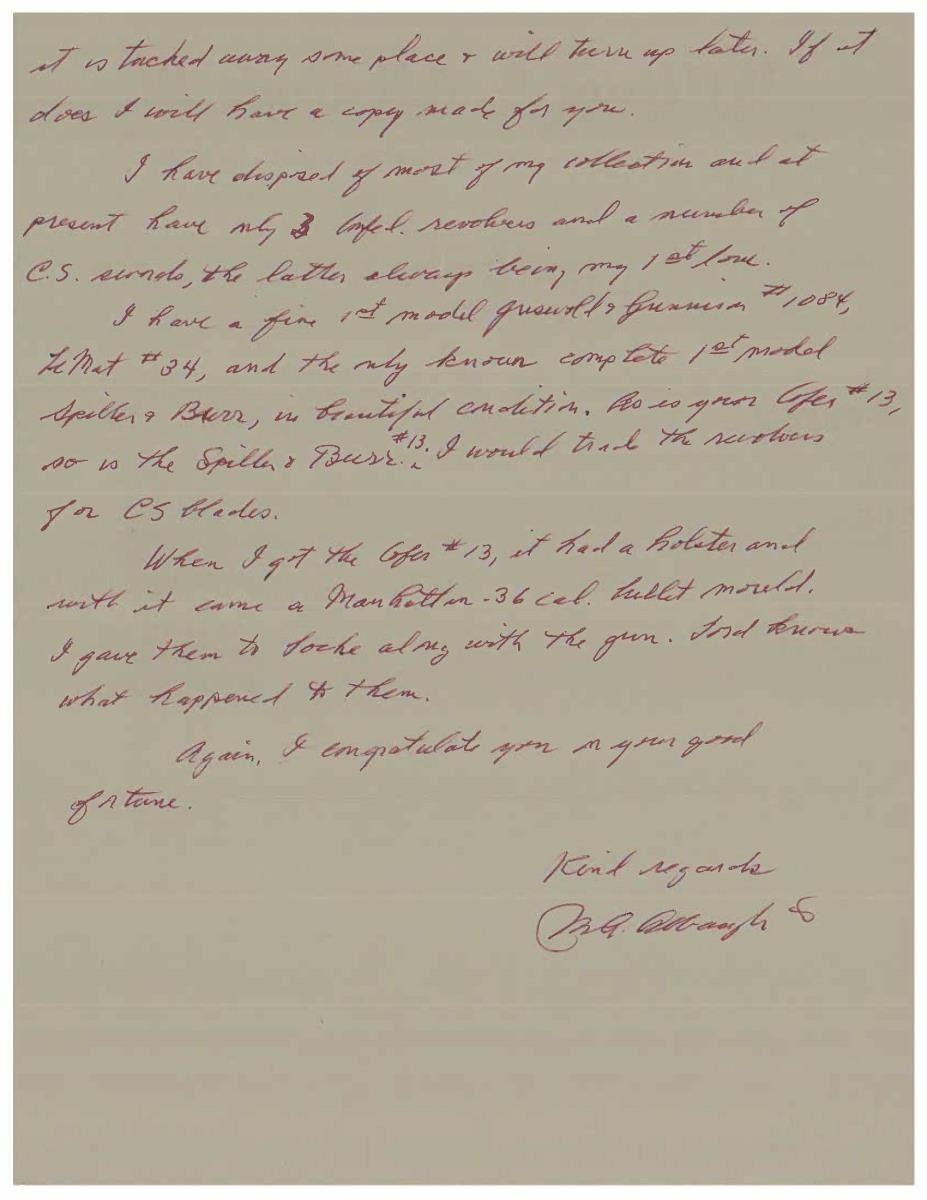 it is tacked away some place & will turn up later. If it
does I will have a copy made for you.
I have disposed of most of my collection and at
present have only 3 Confed. revolvers and a number of
C.S. swords, the latter always being my 1st love.
I have a fine 1st model Griswold & Gunnison #1084,
LeMat #34, and the only known complete 1st model
Spiller & Burr, in beautiful condition. As is your Cofer #13,
so is the Spiller & Burr #13. I would trade the revolvers
for CS blades.
When I got the Cofer #13, it had a holster and
with it came a Manhattan - 36 cal. bullet mould.
I gave them to Locke along with the gun. Lord knows
what happened to them.
Again, I congratulate you on your good
fortune.
Kind regards
Albaugh